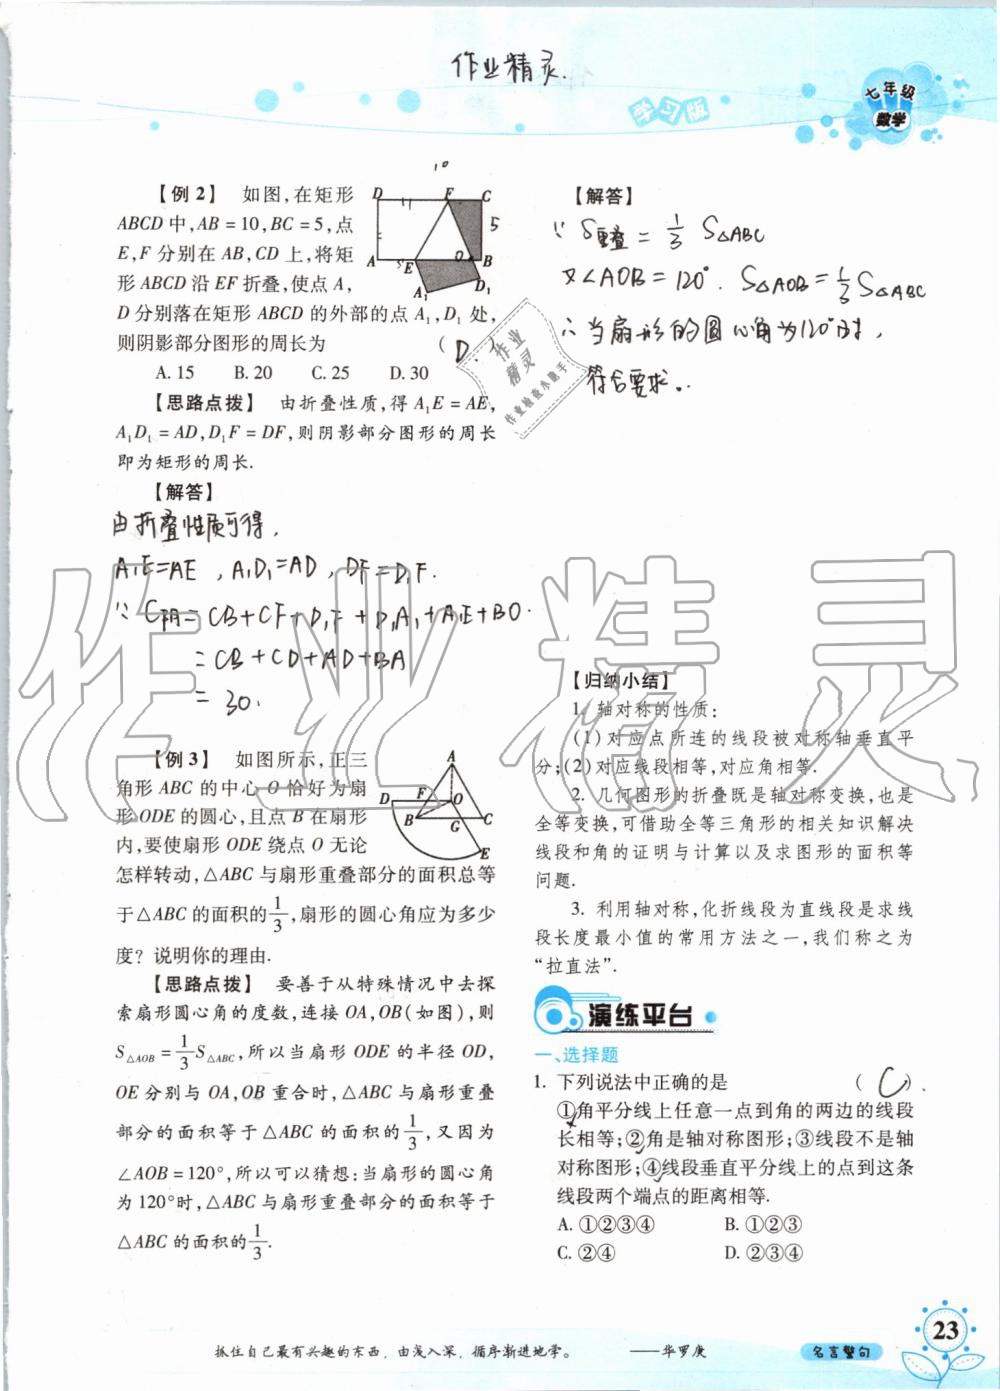 作业精灵.
学习版
七年级
数学
【例2】 如图,在矩形
ABCD中,AB=10,BC=5,点
E,F分别在AB,CD上,将矩
形ABCD沿EF折叠,使点A,
D分别落在矩形ABCD的外部的点A₁,D₁处,
则阴影部分图形的周长为 ( D. )
A. 15 B. 20 C. 25 D. 30
10
D F C
5
A 5 E O B
A₁ D₁
【思路点拨】 由折叠性质,得A₁E=AE,
A₁D₁=AD,D₁F=DF,则阴影部分图形的周长
即为矩形的周长.
【解答】
由折叠性质可得,
A₁E=AE,A₁D₁=AD,DF=D₁F.
∵C阴=CB+CF+D₁F+D₁A₁+A₁E+BO.
=CB+CD+AD+BA
=30.
【例3】 如图所示,正三
角形ABC的中心O恰好为扇
形ODE的圆心,且点B在扇形
内,要使扇形ODE绕点O无论
怎样转动,△ABC与扇形重叠部分的面积总等
于△ABC的面积的1/3,扇形的圆心角应为多少
度?说明你的理由.
A
D F O
B G C
E
【思路点拨】 要善于从特殊情况中去探
索扇形圆心角的度数,连接OA,OB(如图),则
S△AOB=1/3S△ABC,所以当扇形ODE的半径OD,
OE分别与OA,OB重合时,△ABC与扇形重叠
部分的面积等于△ABC的面积的1/3,又因为
∠AOB=120°,所以可以猜想:当扇形的圆心角
为120°时,△ABC与扇形重叠部分的面积等于
△ABC的面积的1/3.
【解答】
∵S重叠=1/3 S△ABC
又∠AOB=120°. S△AOB=1/3S△ABC
∴当扇形的圆心角为120°时,
符合要求.
作业
精灵
作业检查小助手
作业精灵
【归纳小结】
1. 轴对称的性质:
(1)对应点所连的线段被对称轴垂直平
分;(2)对应线段相等,对应角相等.
2. 几何图形的折叠既是轴对称变换,也是
全等变换,可借助全等三角形的相关知识解决
线段和角的证明与计算以及求图形的面积等
问题.
3. 利用轴对称,化折线段为直线段是求线
段长度最小值的常用方法之一,我们称之为
“拉直法”.
演练平台
一、选择题
1. 下列说法中正确的是 ( C ).
①角平分线上任意一点到角的两边的线段
长相等;②角是轴对称图形;③线段不是轴
对称图形;④线段垂直平分线上的点到这条
线段两个端点的距离相等.
A. ①②③④ B. ①②③
C. ②④ D. ②③④
抓住自己最有兴趣的东西,由浅入深,循序渐进地学。 ——华罗庚
名言警句
23